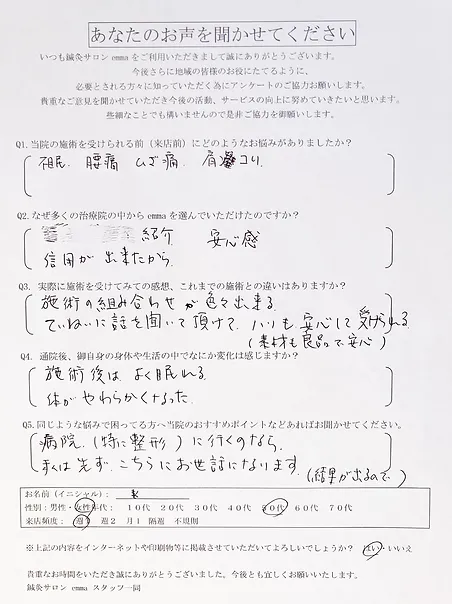 あなたのお声を聞かせてください
いつも鍼灸サロン emma をご利用いただきまして誠にありがとうございます。
今後さらに地域の皆様のお役にたてるように、
必要とされる方々に知っていただく為にアンケートのご協力お願いします。
貴重なご意見を聞かせていただき今後の活動、サービスの向上に努めていきたいと思います。
些細なことでも構いませんので是非ご協力を御願いします。
Q1.当院の施術を受けられる前（来店前）にどのようなお悩みがありましたか？
腰痛 ひざ痛 肩コリ
Q2.なぜ多くの治療院の中から emma を選んでいただけたのですか？
紹介 安心感
信用が出来たから
Q3. 実際に施術を受けてみての感想、これまでの施術との違いはありますか？
施術の組み合わせが色々出来る
ていねいに話を聞いて頂けて いつも安心して受けられる
(素材も良品で安心)
Q4. 通院後、御自身の身体や生活の中でなにか変化は感じますか？
施術後は よく眠れる
体がやわらかくなった
Q5.同じような悩みで困ってる方へ当院のおすすめポイントなどあればお聞かせください。
病院(特に整形)に行くのなら、
私は先ず、こちらにお世話になります
(結果が出るので)
お名前（イニシャル）：
性別：男性・女性 年代： 10代 20代 30代 40代 50代 60代 70代
来店頻度： 週1 週2 月1 隔週 不規則
※上記の内容をインターネットや印刷物等に掲載させていただいてよろしいでしょうか？ はい・いいえ
貴重なお時間をいただき誠にありがとうございました。今後とも宜しくお願いいたします。
鍼灸サロン emma スタッフ一同